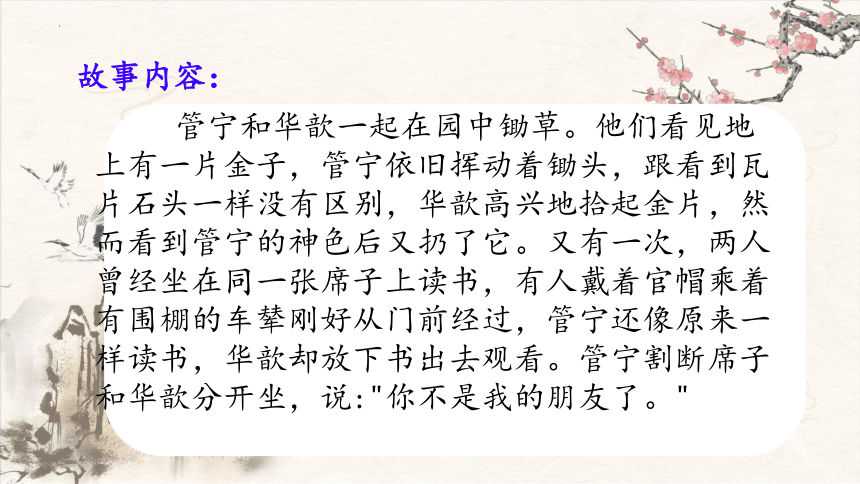 故事内容：
管宁和华歆一起在园中锄草。他们看见地
上有一片金子，管宁依旧挥动着锄头，跟看到瓦
片石头一样没有区别，华歆高兴地拾起金片，然
而看到管宁的神色后又扔了它。又有一次，两人
曾经坐在同一张席子上读书，有人戴着官帽乘着
有围棚的车辇刚好从门前经过，管宁还像原来一
样读书，华歆却放下书出去观看。管宁割断席子
和华歆分开坐，说："你不是我的朋友了。"